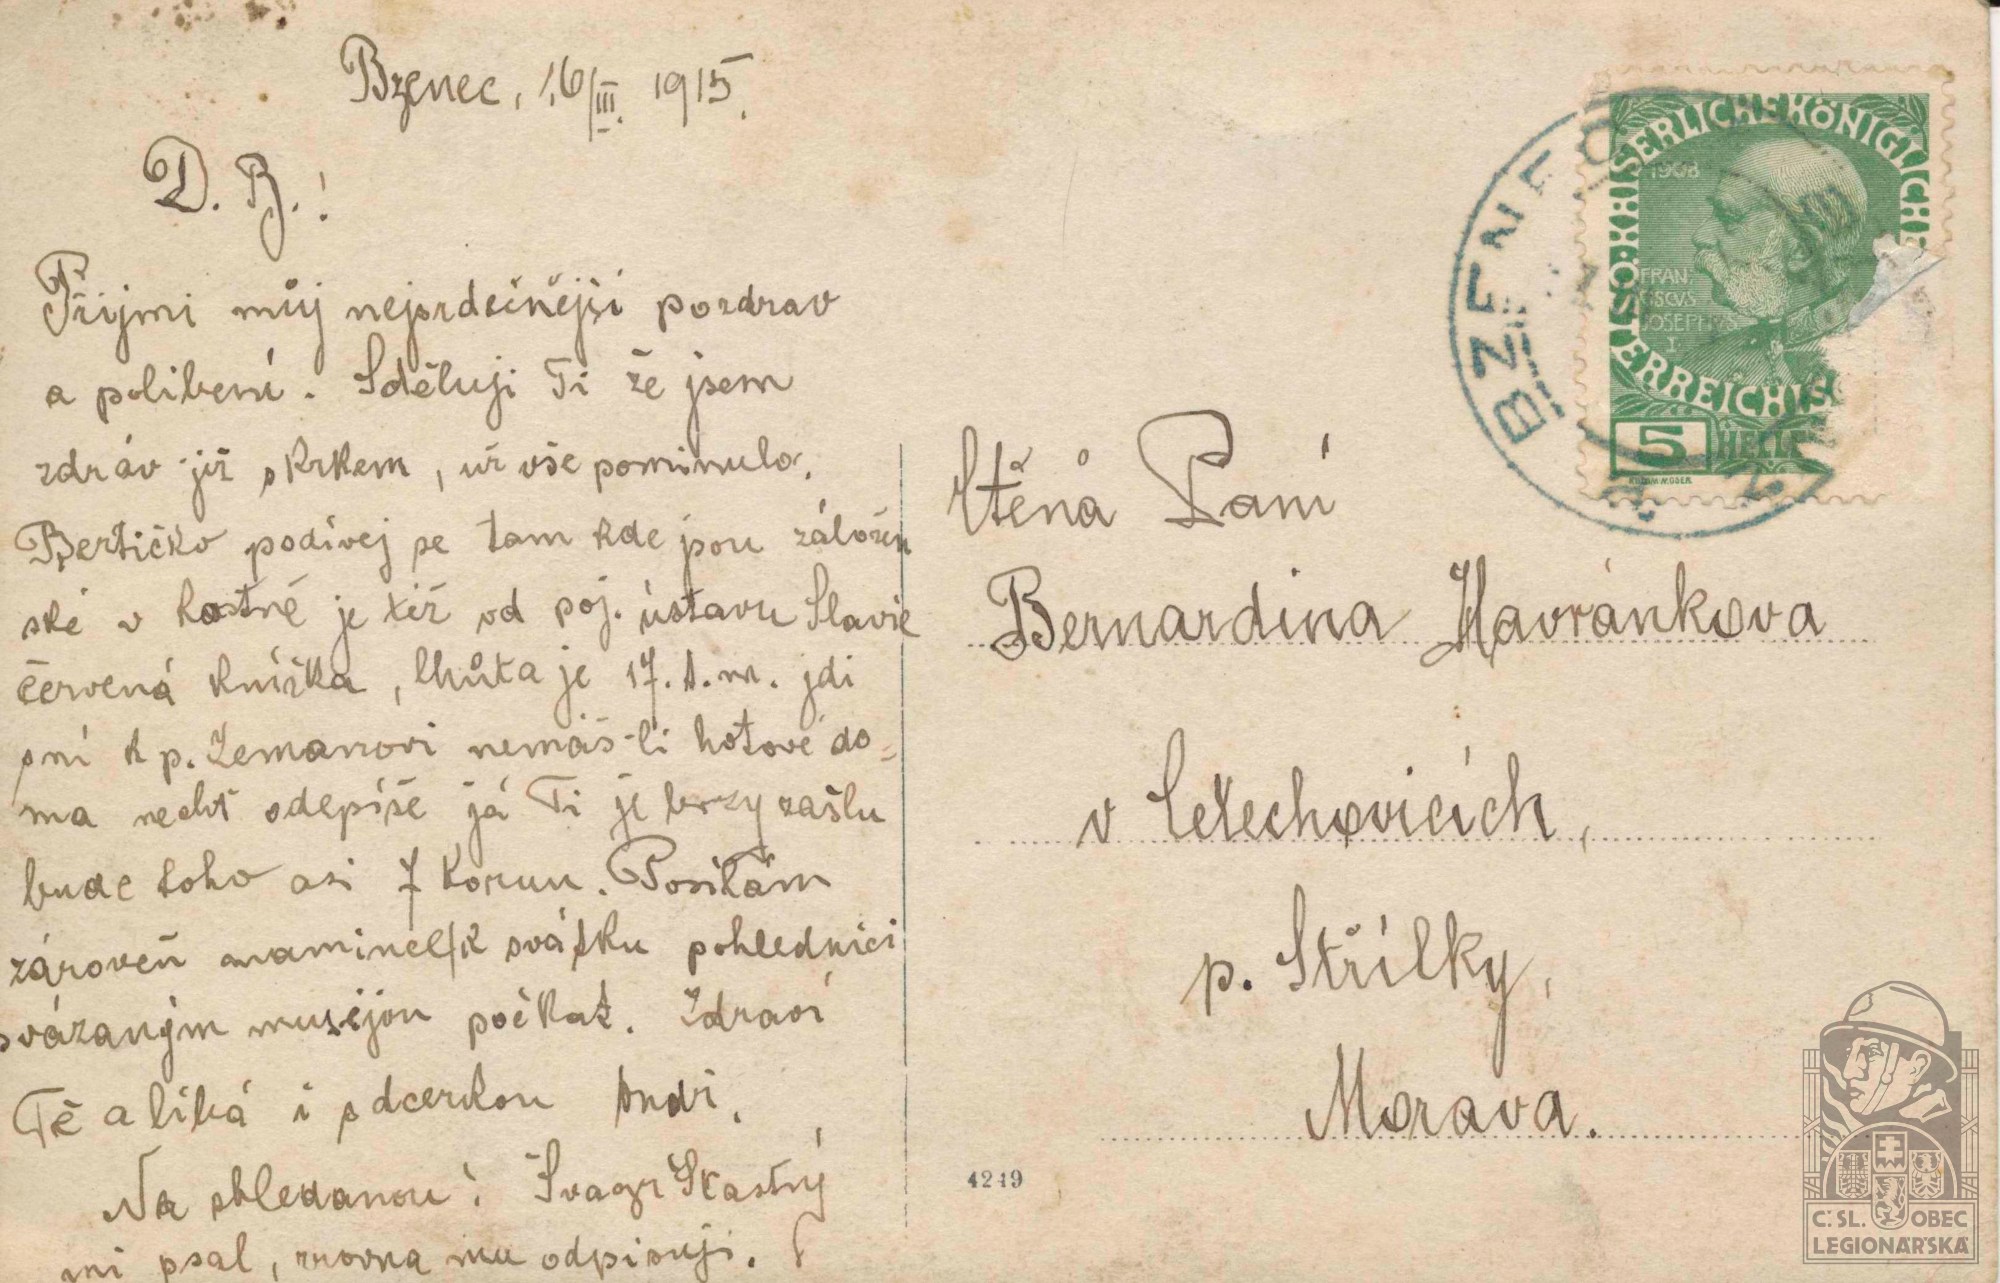 Bzenec, 16/III. 1915.
D. B.!
Přijmi můj nejsrdečnější pozdrav
a políbení. Sděluji Ti že jsem
zdráv již s krkem, už vše pominulo.
Bertičko podívej se tam kde jsou záložen
ské v kostně je též od poj. ústavu Slavie
červená knížka, lhůta je 17. t. m. jdi
s ní k p. Zemanovi nemáš-li hotové do-
ma nechť odepíše já Ti je brzy zašlu
bude toho asi 7 korun. Posílám
zároveň mamince k svátku pohlednici
svázaným musejou počkat. Zdraví
Tě a líbá i s dcerkou
Na shledanou! Švagr Šťastný
mi psal, zrovna mu odpisuji.
Ctěná Paní
Bernardina Havránkova
v Cetechovicích,
p. Střílky,
Morava.
4249
BZENEC
KAISERLICHE KÖNIGLICHE
ÖSTERREICHISC
1908
FRAN
CISCVS
JOSEPHVS
I.
5 HELLE
Č.SL. OBEC
LEGIONÁŘSKÁ